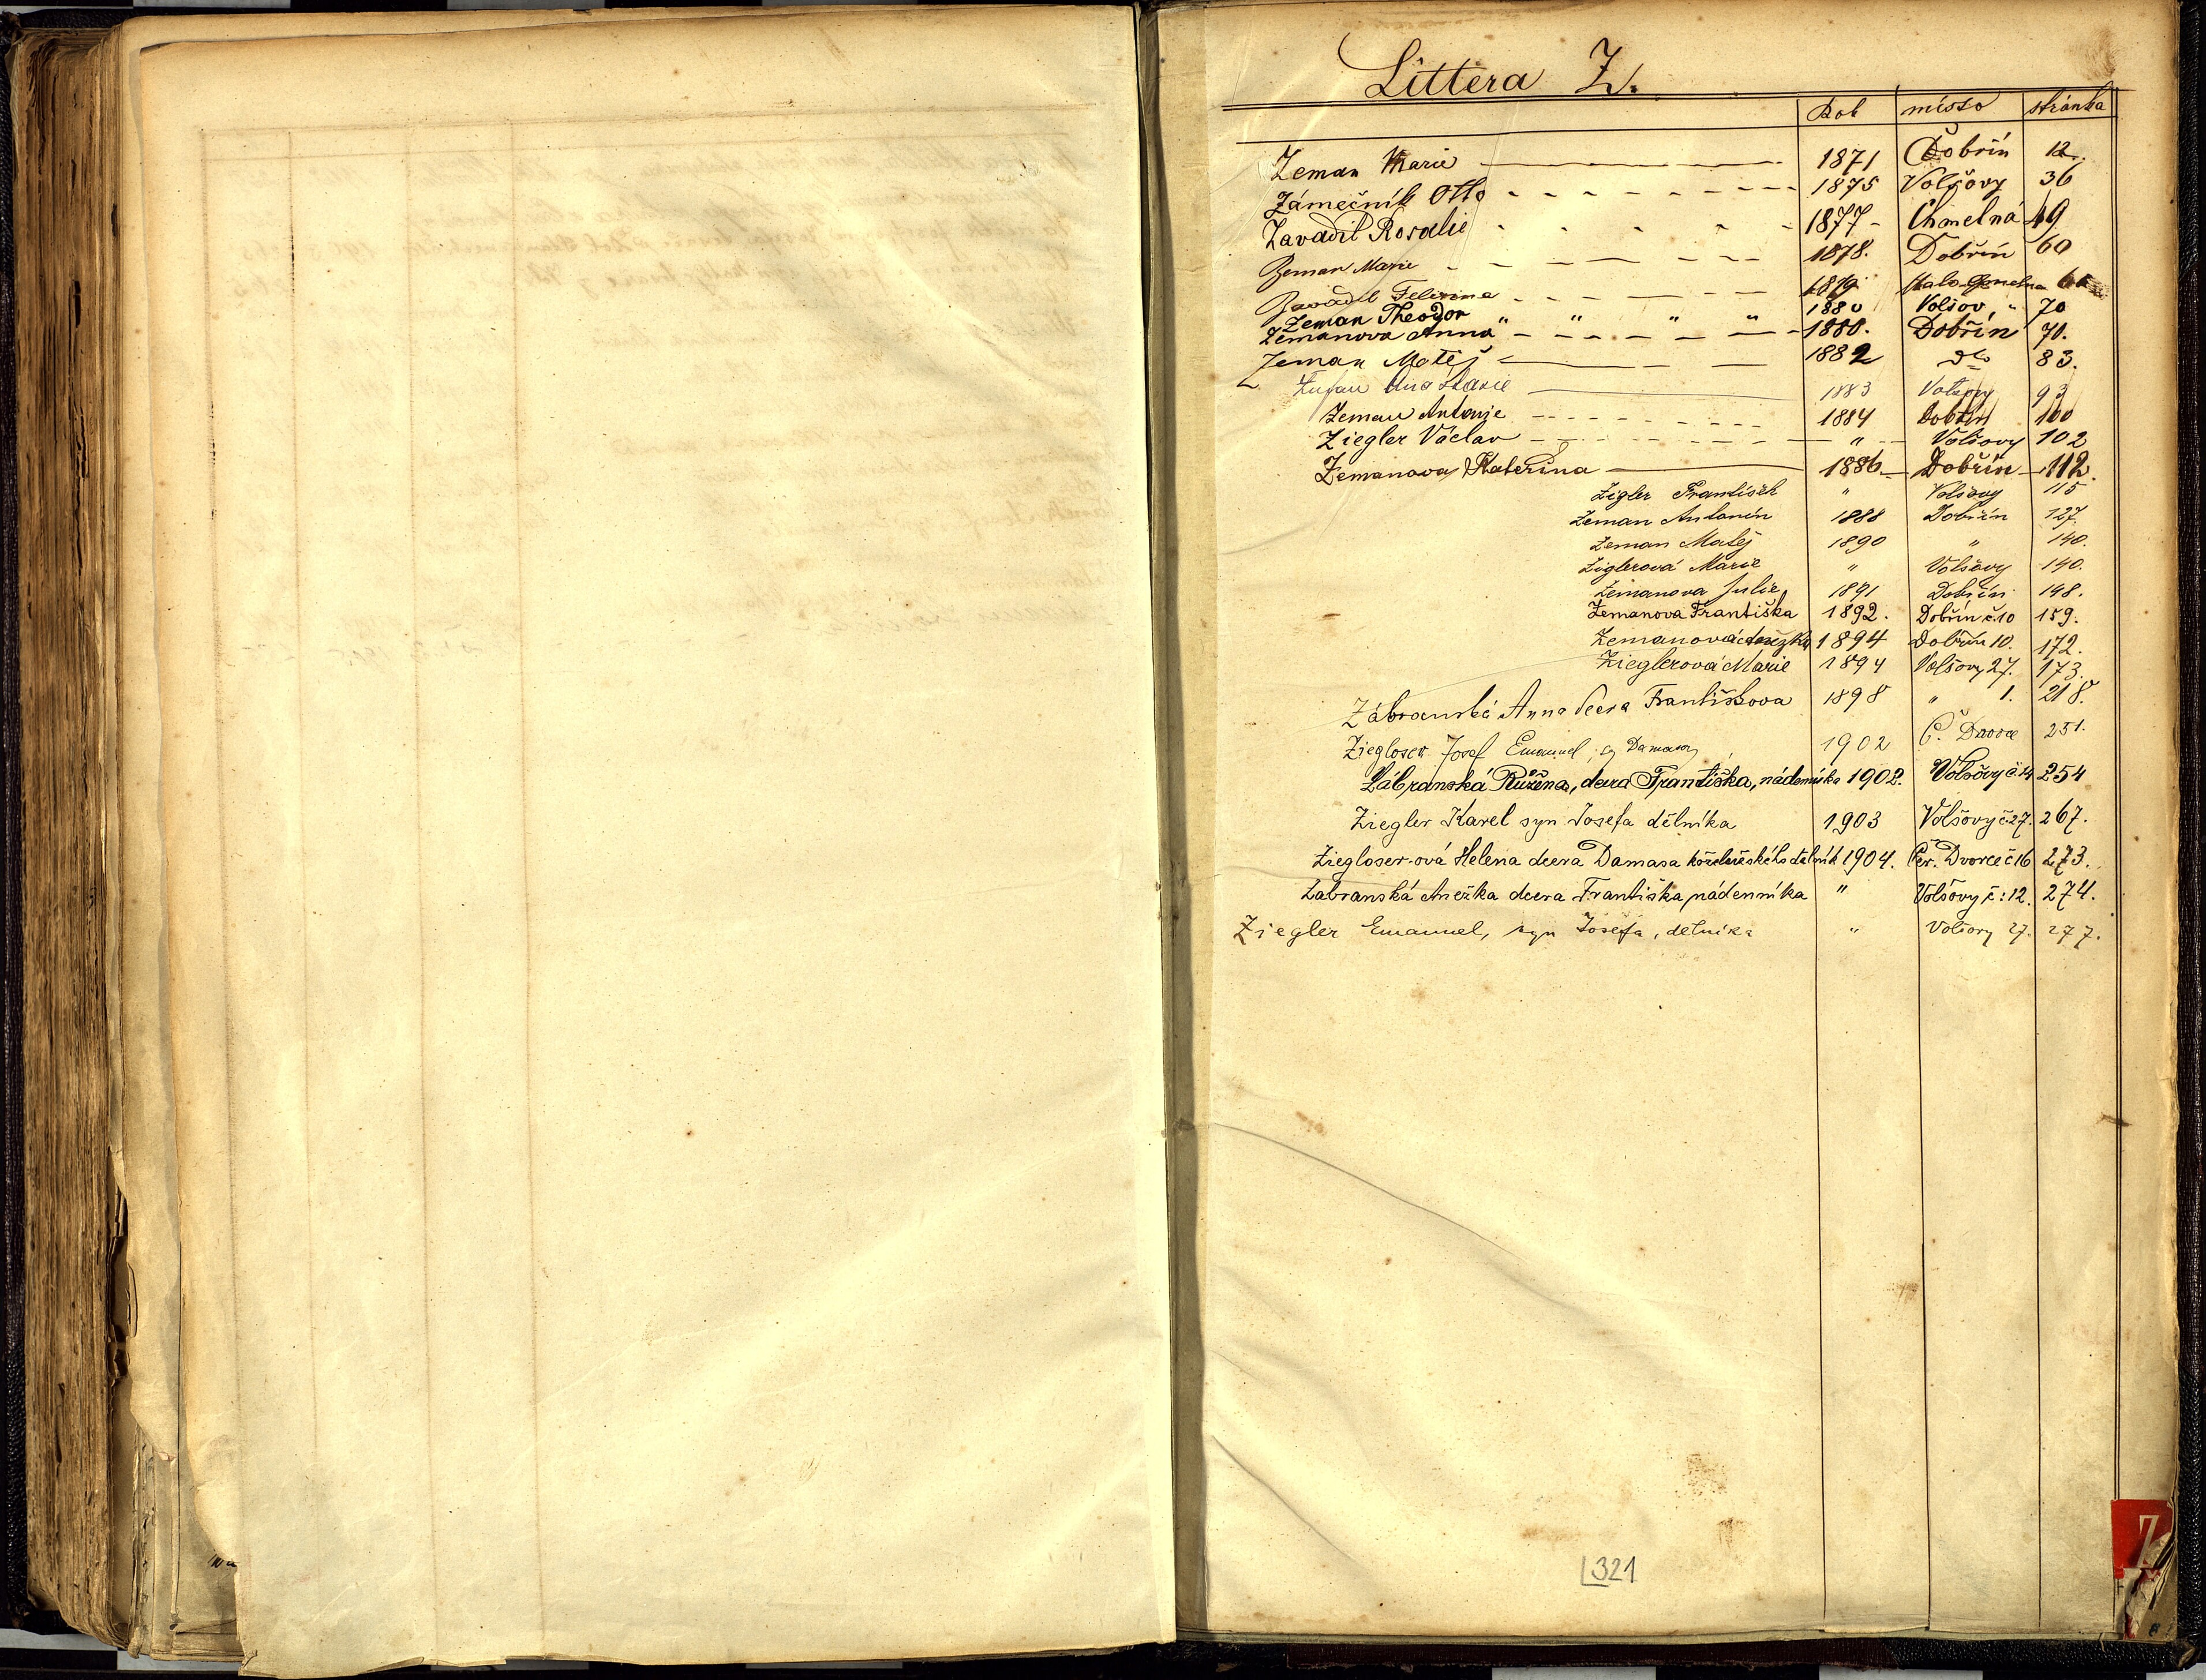 Littera Z.
Rok místo stránka
Zeman Marie 1871 Dobřín 12.
Zámečník Otto 1875 Volšovy 36
Zavadil Rosalie 1877 Chmelná 49
Zeman Marie 1878. Dobřín 60
Zavadil 1879
Zeman Theodor " " " " 1880 70
Zemanova Anna 1880. Dobřín 70.
Zeman Matěj 1882 dto 83.
1883 Volšovy 93
Zeman Antonie 1884 Dobřín 100
Ziegler Václav " Volšovy 102
Zemanova Kateřina 1886 Dobřín 112.
Zigler František " Volšovy 115
Zeman Antonín 1888 Dobřín 127
Zeman Matěj 1890 " 140.
Ziglerová Marie " Volšovy 140.
Zemanova Julie 1891 Dobřín 148.
Zemanova Františka 1892. Dobřín č 10 159.
Zemanová Anežka 1894 Dobřín 10. 172.
Zieglerová Marie 1894 Volšovy 27. 173.
Zábranská Anna dcera Františkova 1898 " 1. 218.
Ziegloser Josef Emanuel, Damasa 1902 Č. Dvorce 251.
Zábranská Růžena, dcera Františka, nádenníka 1902. Volšovy č. 254
Ziegler Karel syn Josefa dělníka 1903 Volšovy č. 27. 267.
Ziegloser-ová Helena dcera Damasa dělník 1904. Čer. Dvorce č 16 273.
Zabranská Anežka dcera Františka, nádenníka " Volšovy č: 12. 274.
Ziegler Emanuel, syn Josefa, dělníka " Volšovy 27. 277.
321
Z